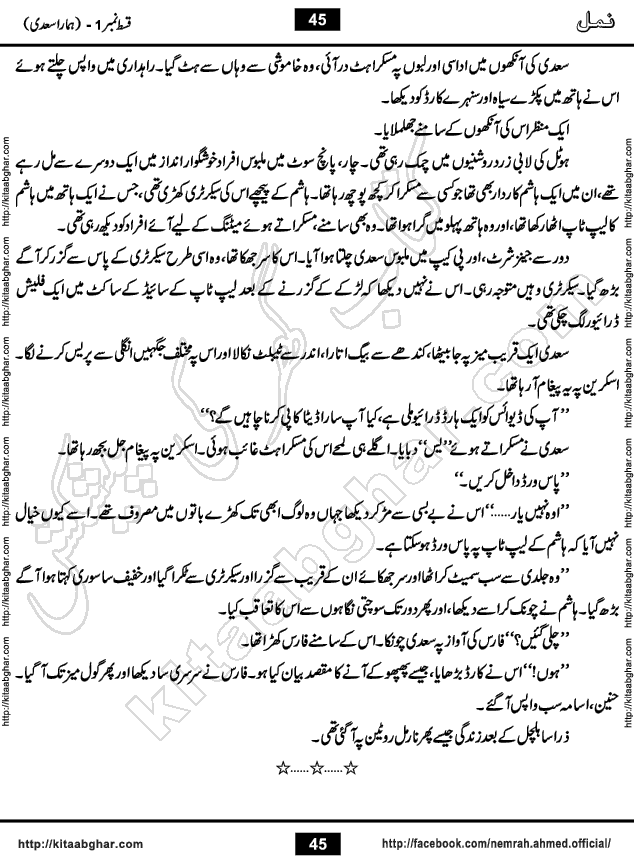 نمل
45
قسط نمبر 1 - (ہمارا سعدی)
سعدی کی آنکھوں میں اداسی اور لبوں پہ مسکراہٹ در آئی، وہ خاموشی سے وہاں سے ہٹ گیا۔ راہداری میں واپس چلتے ہوئے
اس نے ہاتھ میں پکڑے سیاہ اور سنہرے کارڈ کو دیکھا۔
ایک منظر اس کی آنکھوں کے سامنے جھلملایا۔
ہوٹل کی لابی زرد روشنیوں میں چمک رہی تھی۔ چار، پانچ سوٹ میں ملبوس افراد خوشگوار انداز میں ایک دوسرے سے مل رہے
تھے، ان میں ایک ہاشم کاردار بھی تھا جو کسی سے مسکرا کر کچھ پوچھ رہا تھا۔ ہاشم کے پیچھے اس کی سیکرٹری کھڑی تھی، جس نے ایک ہاتھ میں ہاشم
کا لیپ ٹاپ اٹھا رکھا تھا، اور وہ ہاتھ پہلو میں گرا ہوا تھا۔ وہ بھی سامنے، مسکراتے ہوئے میٹنگ کے لیے آئے افراد کو دیکھ رہی تھی۔
دور سے جینز شرٹ، اور پی کیپ میں ملبوس سعدی چلتا ہوا آیا۔ اس کا سر جھکا تھا، وہ اسی طرح سیکرٹری کے پاس سے گزر کر آگے
بڑھ گیا۔ سیکرٹری وہیں متوجہ رہی۔ اس نے نہیں دیکھا کہ لڑکے کے گزرنے کے بعد لیپ ٹاپ کے سائیڈ کے ساکٹ میں ایک فلیش
ڈرائیو لگ چکی تھی۔
سعدی ایک قریب میز پہ جا بیٹھا، کندھے سے بیگ اتارا، اندر سے ٹیبلٹ نکالا اور اس پہ مختلف جگہیں انگلی سے پریس کرنے لگا۔
اسکرین پہ یہ پیغام آ رہا تھا۔
’’آپ کی ڈیوائس کو ایک ہارڈ ڈرائیو ملی ہے، کیا آپ سارا ڈیٹا کاپی کرنا چاہیں گے؟‘‘
سعدی نے مسکراتے ہوئے ’’یس‘‘ دبایا۔ اگلے ہی لمحے اس کی مسکراہٹ غائب ہوئی۔ اسکرین پہ پیغام جل بجھ رہا تھا۔
’’پاس ورڈ داخل کریں۔‘‘
’’اوہ نہیں یار......‘‘ اس نے بے بسی سے مڑ کر دیکھا جہاں وہ لوگ ابھی تک کھڑے باتوں میں مصروف تھے۔ اسے کیوں خیال
نہیں آیا کہ ہاشم کے لیپ ٹاپ پہ پاس ورڈ ہو سکتا ہے۔
’’وہ جلدی سے سب سمیٹ کر اٹھا اور سر جھکائے ان کے قریب سے گزرا اور سیکرٹری سے ٹکرا گیا اور خفیف سا سوری کہتا ہوا آگے
بڑھ گیا۔ ہاشم نے چونک کر اسے دیکھا، اور پھر دور تک سوچتی نگاہوں سے اس کا تعاقب کیا۔
’’چلی گئیں؟‘‘ فارس کی آواز پہ سعدی چونکا۔ اس کے سامنے فارس کھڑا تھا۔
’’ہوں!‘‘ اس نے کارڈ بڑھایا، جیسے پھپھو کے آنے کا مقصد بیان کیا ہو۔ فارس نے سرسری سا دیکھا اور پھر گول میز تک آ گیا۔
حنین، اسامہ سب واپس آ گئے۔
ذرا سا ہلچل کے بعد زندگی جیسے پھر نارمل روٹین پہ آ گئی تھی۔
☆......☆......☆
http://kitaabghar.com
http://kitaabghar.com
http://kitaabghar.com
http://kitaabghar.com
http://kitaabghar.com
http://kitaabghar.com
http://kitaabghar.com
http://kitaabghar.com
http://kitaabghar.com
http://kitaabghar.com
http://kitaabghar.com
http://kitaabghar.com
کتاب گھر کی پیشکش
kitaabghar.com
http://kitaabghar.com
45
http://facebook.com/nemrah.ahmed.official/